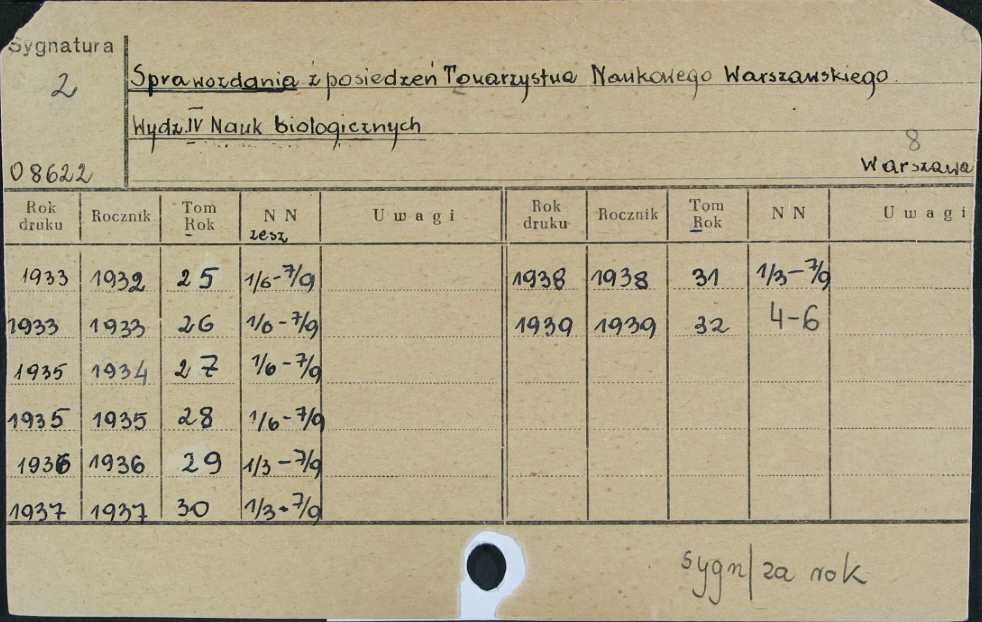 Sygnatura
2
08622
Sprawozdania z posiedzeń Towarzystwa Naukowego Warszawskiego.
Wydz. IV Nauk biologicznych
8
Warszawa
Rok druku Rocznik Tom Rok NN zesz Uwagi Rok druku Rocznik Tom Rok NN Uwagi
1933 1932 25 1/6-7/9 1938 1938 31 1/3-7/9
1933 1933 26 1/6-7/9 1939 1939 32 4-6
1935 1934 27 1/6-7/9
1935 1935 28 1/6-7/9
1936 1936 29 1/3-7/9
1937 1937 30 1/3-7/9
sygn/za rok